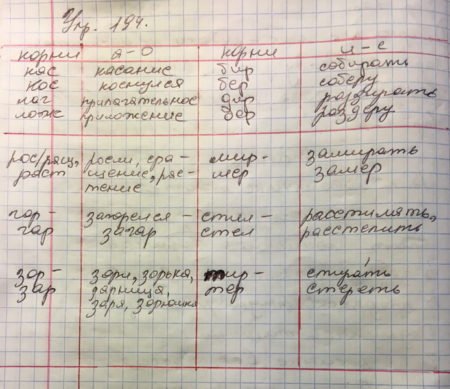 Упр. 194.
корни а-о корни и-е
кас касание бир собирать
кос коснулся бер соберу
лаг прилагательное дир раздирать
лож приложение дер раздеру
рос/ращ, росли, сра- мир- замирать
раст щение, рас- мер замер
тение
гор- загорелся - стил- расстилать,
гар загар стел расстелить
зор- зори, зорька, тир- стирать
зар зарница, тер стереть
заря, зорюшка